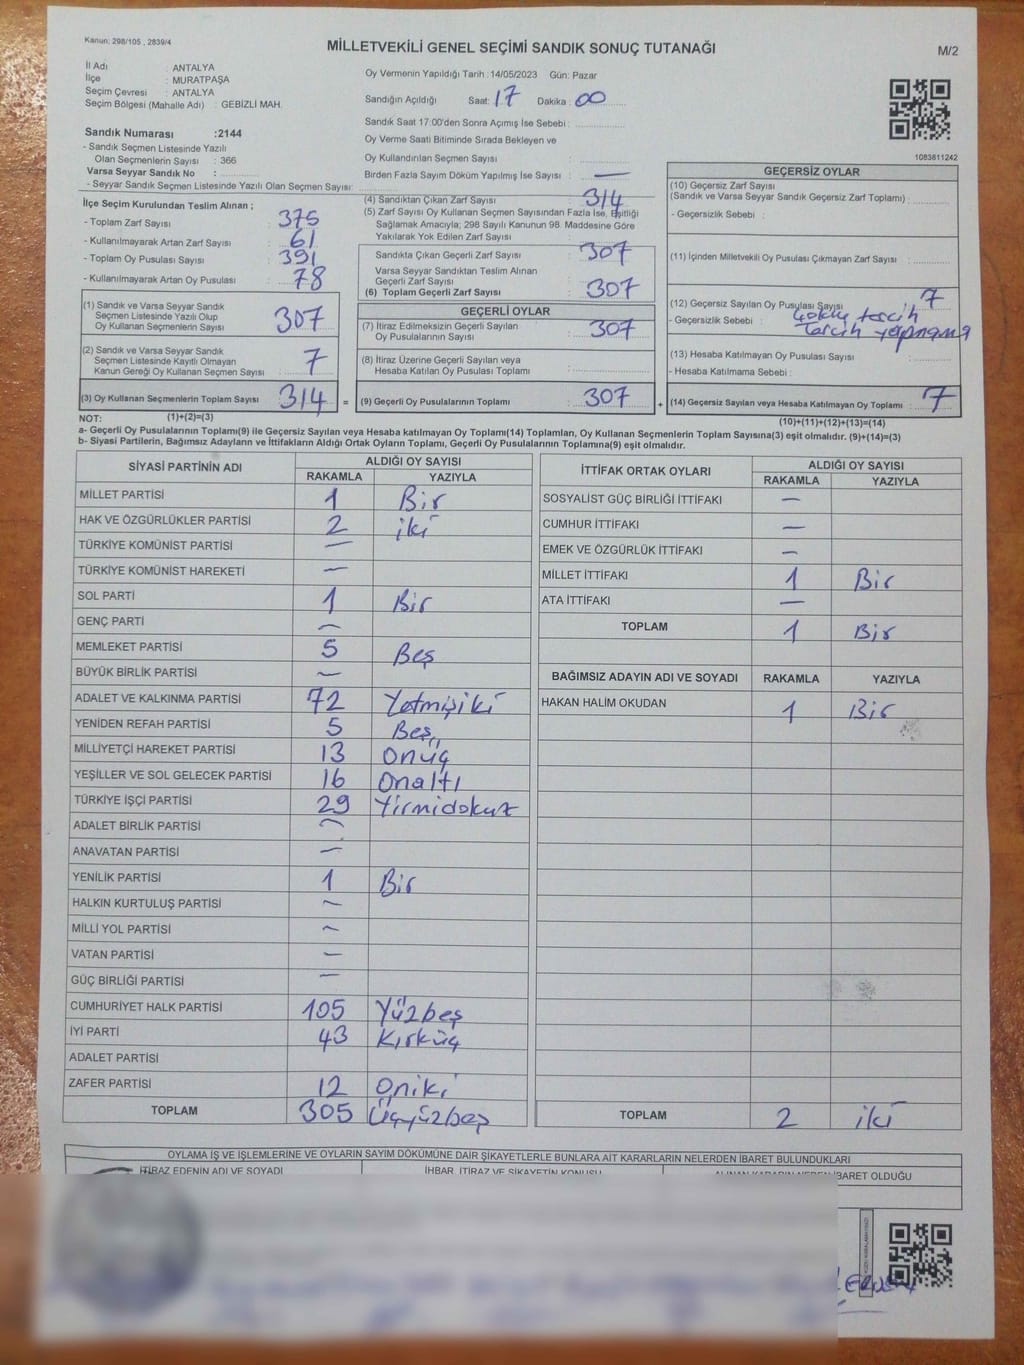 Kanun: 298/105 , 2839/4
MİLLETVEKİLİ GENEL SEÇİMİ SANDIK SONUÇ TUTANAĞI
M/2
İl Adı : ANTALYA
İlçe : MURATPAŞA
Seçim Çevresi : ANTALYA
Seçim Bölgesi (Mahalle Adı) : GEBİZLİ MAH.
Sandık Numarası :2144
- Sandık Seçmen Listesinde Yazılı
Olan Seçmenlerin Sayısı : 366
Varsa Seyyar Sandık No :
- Seyyar Sandık Seçmen Listesinde Yazılı Olan Seçmen Sayısı:
Oy Vermenin Yapıldığı Tarih :14/05/2023 Gün: Pazar
Sandığın Açıldığı Saat: 17 Dakika : 00
Sandık Saat 17:00'den Sonra Açmış İse Sebebi :
Oy Verme Saati Bitiminde Sırada Bekleyen ve
Oy Kullandırılan Seçmen Sayısı :
Birden Fazla Sayım Döküm Yapılmış İse Sayısı : —
1083811242
İlçe Seçim Kurulundan Teslim Alınan ;
- Toplam Zarf Sayısı : 375
- Kullanılmayarak Artan Zarf Sayısı : 61
- Toplam Oy Pusulası Sayısı : 391
- Kullanılmayarak Artan Oy Pusulası : 78
(1) Sandık ve Varsa Seyyar Sandık
Seçmen Listesinde Yazılı Olup
Oy Kullanan Seçmenlerin Sayısı : 307
(2) Sandık ve Varsa Seyyar Sandık
Seçmen Listesinde Kayıtlı Olmayan
Kanun Gereği Oy Kullanan Seçmen Sayısı : 7
(3) Oy Kullanan Seçmenlerin Toplam Sayısı : 314 =
(4) Sandıktan Çıkan Zarf Sayısı : 314
(5) Zarf Sayısı Oy Kullanan Seçmen Sayısından Fazla İse, Eşitliği
Sağlamak Amacıyla; 298 Sayılı Kanunun 98. Maddesine Göre
Yakılarak Yok Edilen Zarf Sayısı :
Sandıkta Çıkan Geçerli Zarf Sayısı : 307
Varsa Seyyar Sandıktan Teslim Alınan
Geçerli Zarf Sayısı :
(6) Toplam Geçerli Zarf Sayısı : 307
GEÇERLİ OYLAR
(7) İtiraz Edilmeksizin Geçerli Sayılan
Oy Pusulalarının Sayısı : 307
(8) İtiraz Üzerine Geçerli Sayılan veya
Hesaba Katılan Oy Pusulası Toplamı :
(9) Geçerli Oy Pusulalarının Toplamı : 307 +
GEÇERSİZ OYLAR
(10) Geçersiz Zarf Sayısı
(Sandık ve Varsa Seyyar Sandık Geçersiz Zarf Toplamı) :
- Geçersizlik Sebebi :
(11) İçinden Milletvekili Oy Pusulası Çıkmayan Zarf Sayısı :
(12) Geçersiz Sayılan Oy Pusulası Sayısı : 7
- Geçersizlik Sebebi : tercih
Tercih yapmama
(13) Hesaba Katılmayan Oy Pusulası Sayısı :
- Hesaba Katılmama Sebebi :
(14) Geçersiz Sayılan veya Hesaba Katılmayan Oy Pusulası Toplamı : 7
NOT: (1)+(2)=(3)
(10)+(11)+(12)+(13)=(14)
a- Geçerli Oy Pusulalarının Toplamı(9) ile Geçersiz Sayılan veya Hesaba Katılmayan Oy Pusulası Toplamı(14) Toplamları, Oy Kullanan Seçmenlerin Toplam Sayısına(3) eşit olmalıdır. (9)+(14)=(3)
b- Siyasi Partilerin, Bağımsız Adayların ve İttifakların Aldığı Ortak Oyların Toplamı, Geçerli Oy Pusulalarının Toplamına(9) eşit olmalıdır.
SİYASİ PARTİNİN ADI
ALDIĞI OY SAYISI
RAKAMLA YAZIYLA
MİLLET PARTİSİ 1 Bir
HAK VE ÖZGÜRLÜKLER PARTİSİ 2 iki
TÜRKİYE KOMÜNİST PARTİSİ —
TÜRKİYE KOMÜNİST HAREKETİ —
SOL PARTİ 1 Bir
GENÇ PARTİ —
MEMLEKET PARTİSİ 5 Beş
BÜYÜK BİRLİK PARTİSİ —
ADALET VE KALKINMA PARTİSİ 72 Yetmişiki
YENİDEN REFAH PARTİSİ 5 Beş
MİLLİYETÇİ HAREKET PARTİSİ 13 Onüç
YEŞİLLER VE SOL GELECEK PARTİSİ 16 Onaltı
TÜRKİYE İŞÇİ PARTİSİ 29 Yirmidokuz
ADALET BİRLİK PARTİSİ —
ANAVATAN PARTİSİ —
YENİLİK PARTİSİ 1 Bir
HALKIN KURTULUŞ PARTİSİ —
MİLLİ YOL PARTİSİ —
VATAN PARTİSİ —
GÜÇ BİRLİĞİ PARTİSİ —
CUMHURİYET HALK PARTİSİ 105 Yüzbeş
İYİ PARTİ 43 Kırküç
ADALET PARTİSİ
ZAFER PARTİSİ 12 Oniki
TOPLAM 305 Üçyüzbeş
İTTİFAK ORTAK OYLARI
ALDIĞI OY SAYISI
RAKAMLA YAZIYLA
SOSYALİST GÜÇ BİRLİĞİ İTTİFAKI —
CUMHUR İTTİFAKI —
EMEK VE ÖZGÜRLÜK İTTİFAKI —
MİLLET İTTİFAKI 1 Bir
ATA İTTİFAKI —
TOPLAM 1 Bir
BAĞIMSIZ ADAYIN ADI VE SOYADI RAKAMLA YAZIYLA
HAKAN HALİM OKUDAN 1 Bir
TOPLAM 2 iki
OYLAMA İŞ VE İŞLEMLERİNE VE OYLARIN SAYIM DÖKÜMÜNE DAİR ŞİKAYETLERLE BUNLARA AİT KARARLARIN NELERDEN İBARET BULUNDUKLARI
İTİRAZ EDENİN ADI VE SOYADI
İHBAR, İTİRAZ VE ŞİKAYETİN KONUSU
ALINAN KARARIN NEDEN İBARET OLDUĞU